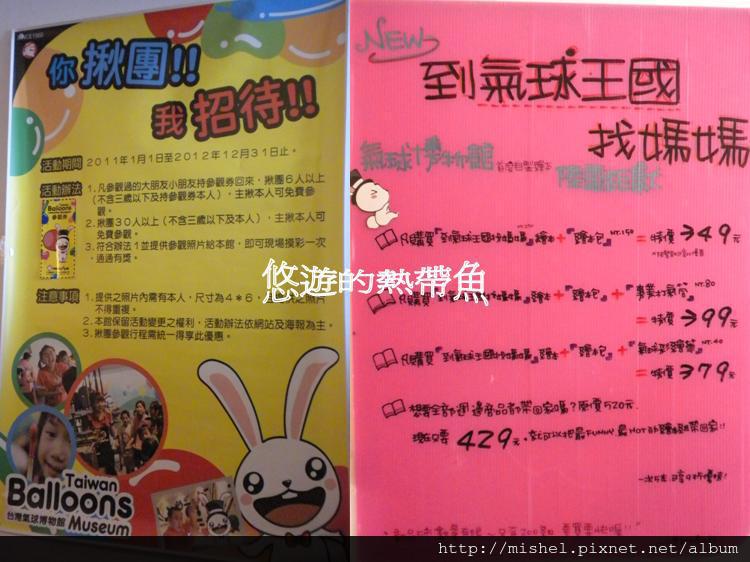 SINCE 1960
你 揪團!!
我 招待!!
活動期間 2011年1月1日至2012年12月31日止。
活動辦法 1.凡參觀過的大朋友小朋友持參觀券回來,揪團6人以上
(不含三歲以下及持參觀券本人),主揪本人可免費參
觀。
2.揪團30人以上(不含三歲以下及本人),主揪本人可
免費參觀。
3.符合辦法1並提供參觀照片給本館,即可現場摸彩一次
,過過有獎。
注意事項 1.提供之照片內需有本人,尺寸為4*6,
之照片
不得重複。
2.本館保留活動變更之權利,活動辦法依網站及海報為主。
3.揪團參觀行程需統一得享此優惠。
Taiwan
Balloons
Museum
台灣氣球博物館
NEW
到氣球王國
找媽媽
氣球博物館
凡購買『到氣球王國找媽媽』繪本+『繪本包』NT.150 = 特價→249元
凡購買『到氣球王國找媽媽』繪本+『繪本包』+『專業打氣筒』NT.80
=特價→299元
凡購買『到氣球王國找媽媽』繪本+『繪本包』+ NT.40
=特價→279元
想要全部週邊商品都帶回家嗎?原價520元
現在只要 429元,就可以把最FUNNY、最HOT的 帶回家!!
悠遊的熱帶魚
http://mishel.pixnet.net/album